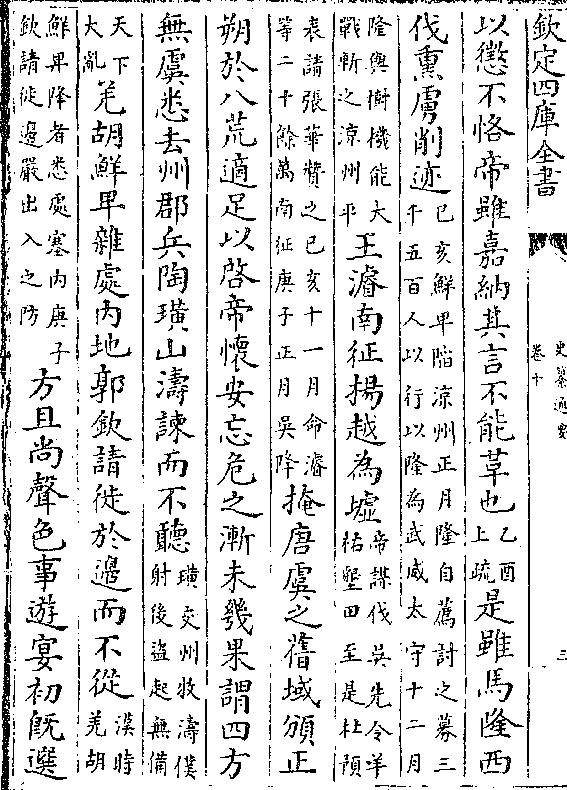 欽定四庫全書
史纂通要
卷十
三
以懲不恪帝雖嘉納其言不能革也乙酉上疏是雖馬隆西
伐熏虜削迹已亥鮮卑陷涼州正月隆自薦討之募三千五百人以行以隆為武威太守十二月
隆與樹機能大戰斬之涼州平王濬南征揚越為墟帝謀伐吳先令羊祜墾田至是杜預
表請張華贊之已亥十一月命濬等二十餘萬南征庚子正月吳降掩唐虞之舊域頒正
朔於八荒適足以啓帝懷安忘危之漸未幾果謂四方
無虞悉去州郡兵陶璜山濤諫而不聽璜交州牧濤僕射後盜起無備
天下大亂羌胡鮮卑雜處內地郭欽請徙於邊而不從漢時羌胡
鮮卑降者悉處塞內庚子欽請徙邊嚴出入之防方且尚聲色事遊宴初既選